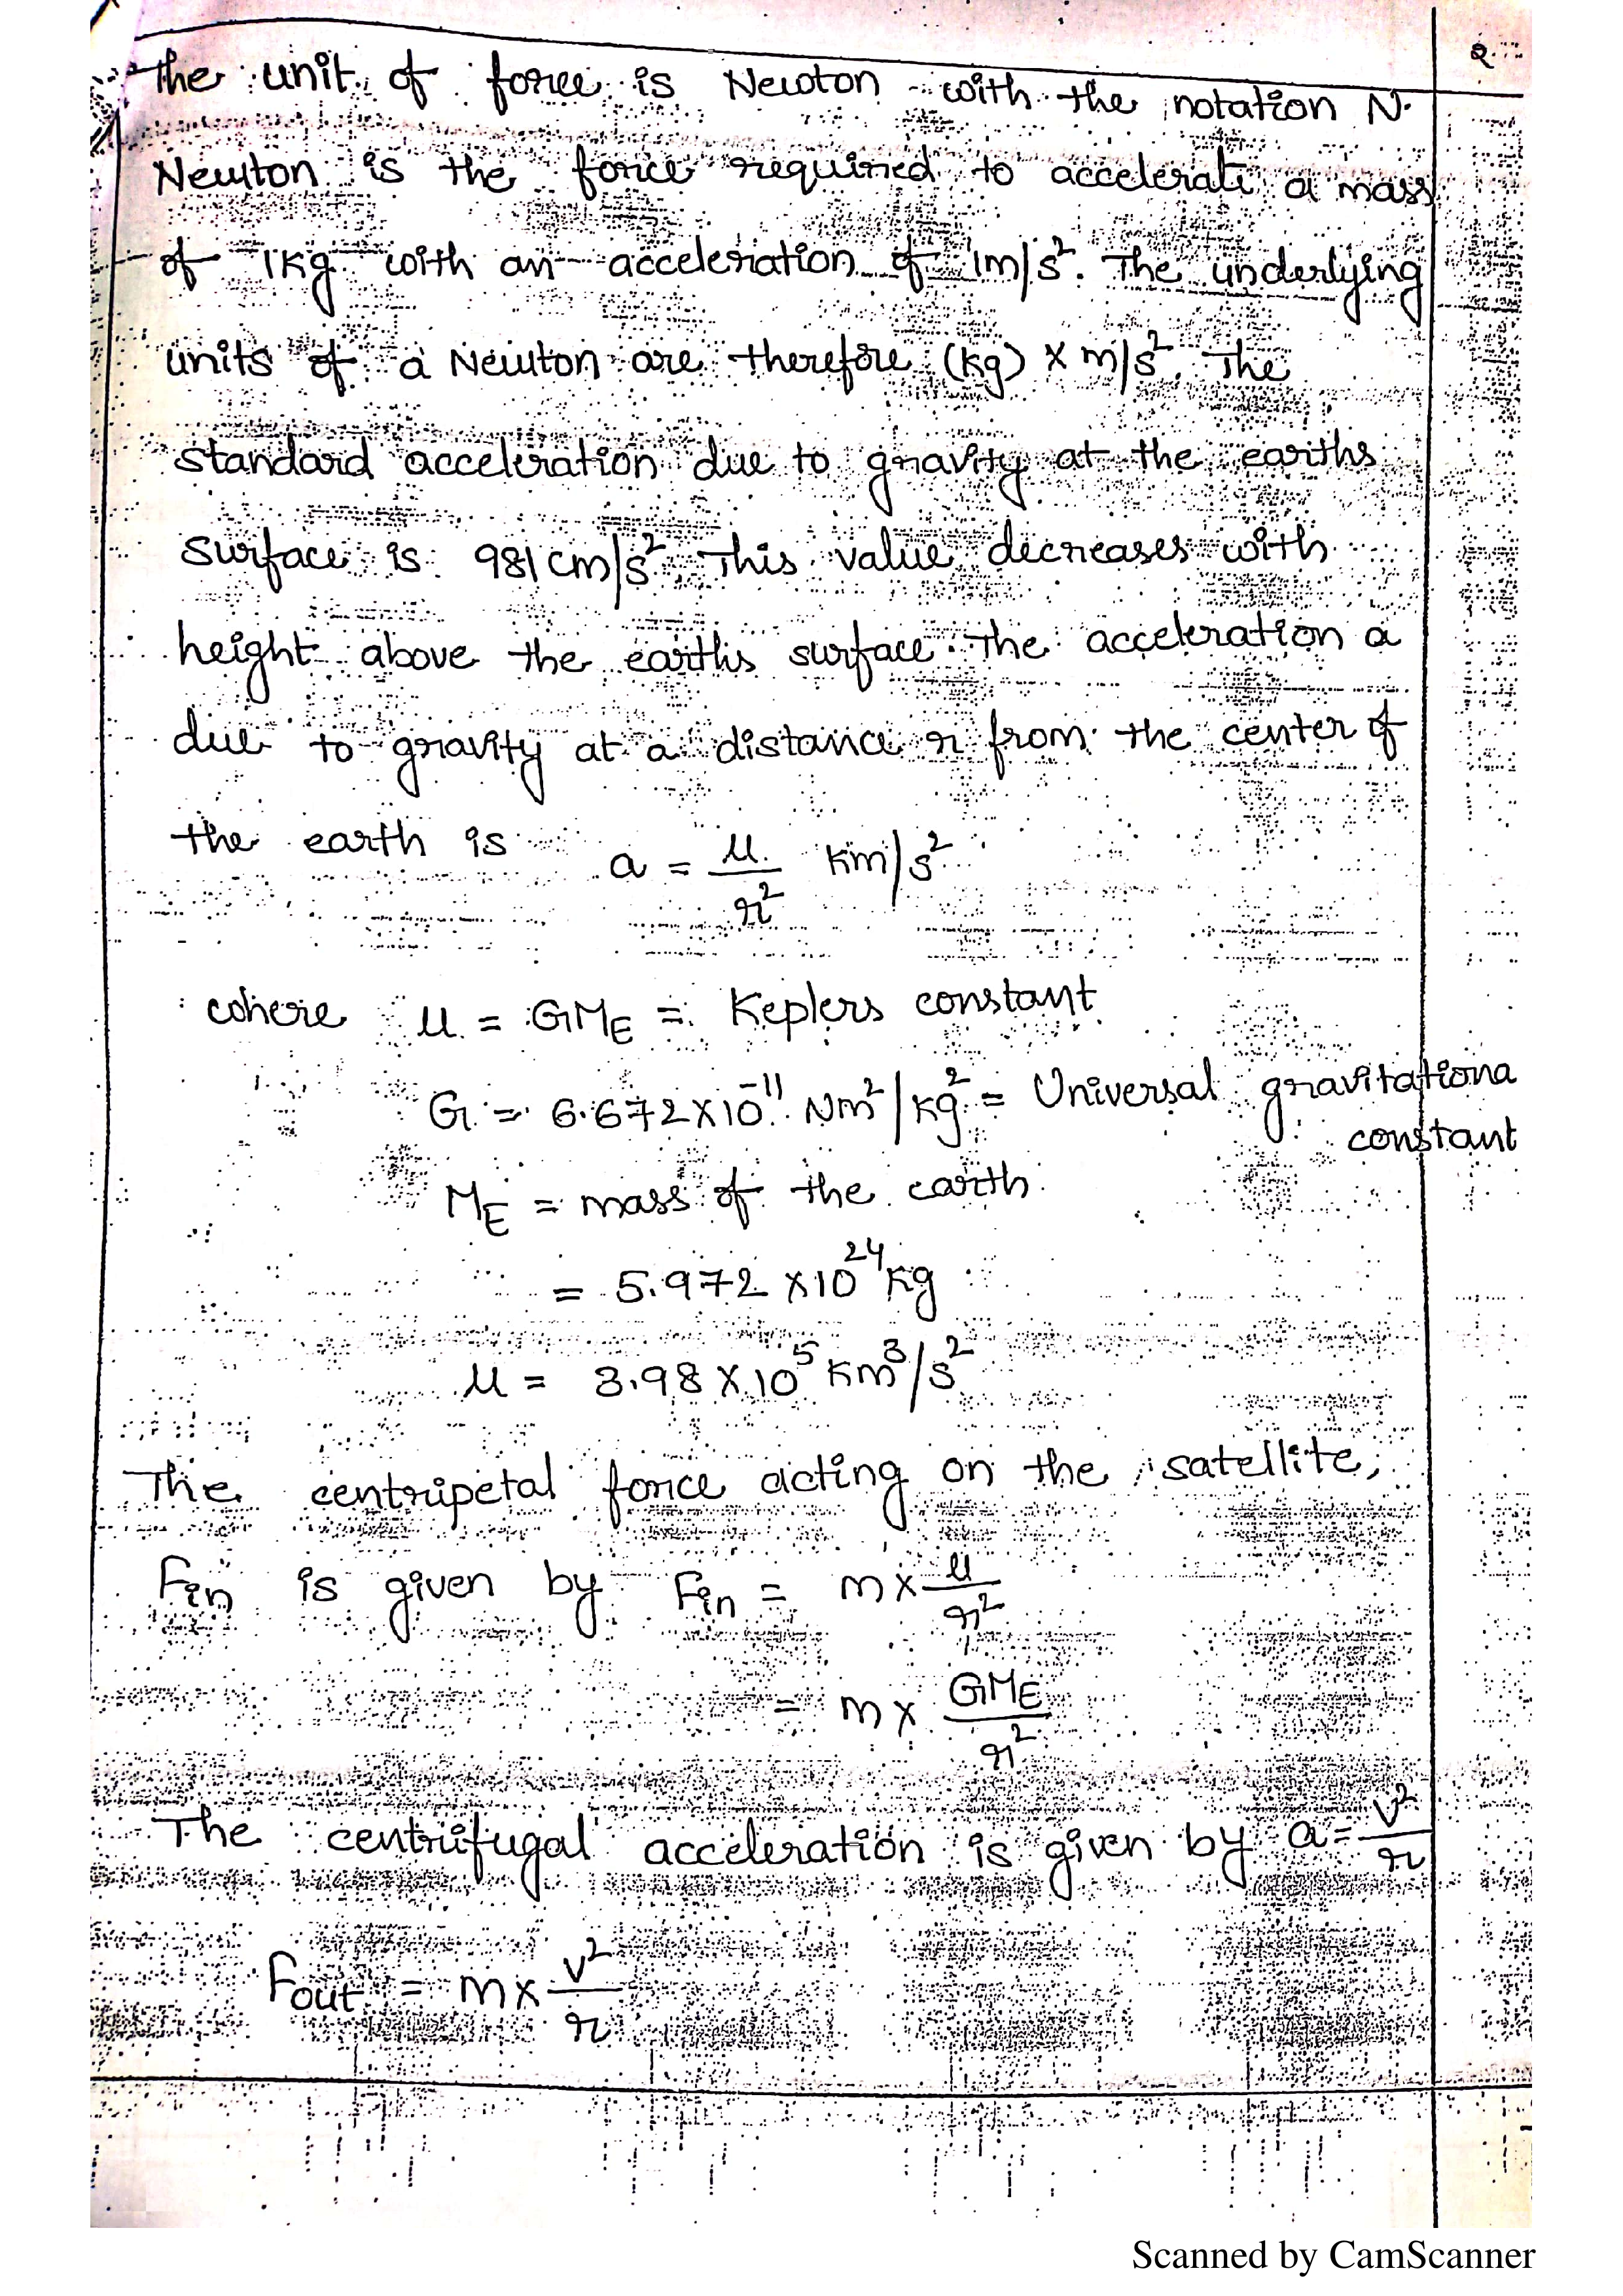 2
The unit of force is Newton with the notation N.
Newton is the force required to accelerate a mass
of 1Kg with an acceleration of 1m/s². The underlying
units of a Newton are therefore (Kg) × m/s². The
standard acceleration due to gravity at the earths
surface is 981 cm/s². This value decreases with
height above the earths surface. The acceleration a
due to gravity at a distance r from the center of
the earth is a = μ/r² Km/s²
where μ = GME = Keplers constant
G = 6.672×10⁻¹¹ Nm²/kg² = Universal gravitationa
constant
ME = mass of the earth
= 5.972 ×10²⁴ Kg
μ = 3.98 × 10⁵ Km³/s²
The centripetal force acting on the satellite,
Fin is given by Fin = m × μ/r²
= m × GME/r²
The centrifugal acceleration is given by a = v²/r
Fout = m × v²/r
Scanned by CamScanner